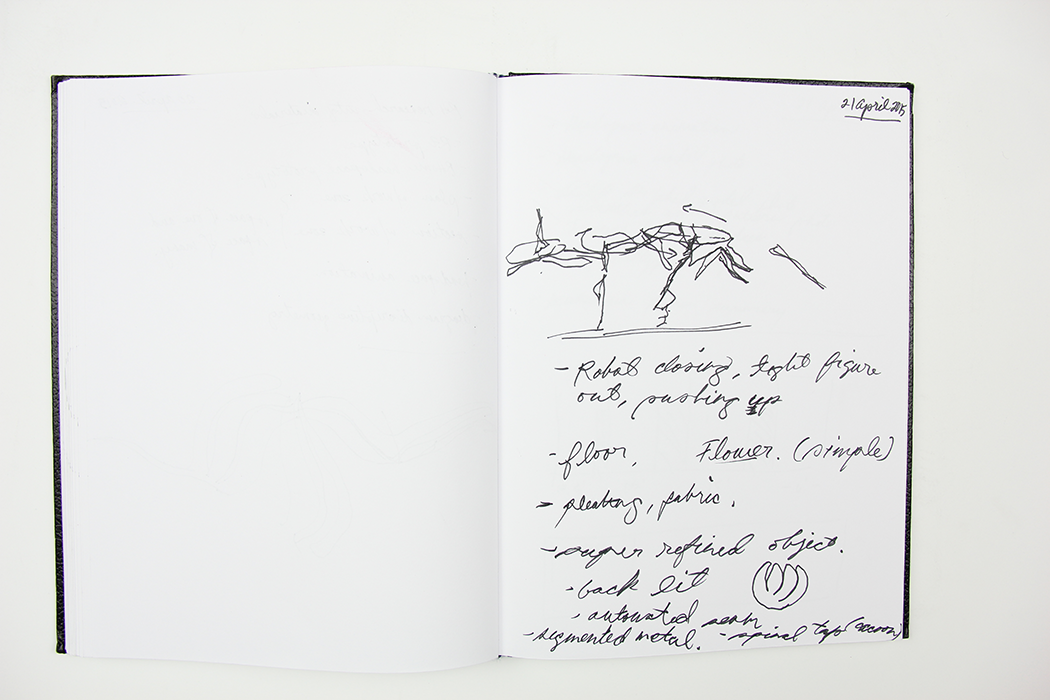 21 April 2015
- Robot closing, light figure
out, pushing up
- floor, Flower. (simple)
- pleating, fabric.
- super refined object.
- back lit
- automated
- segmented metal. - spinal tap (cocoon)